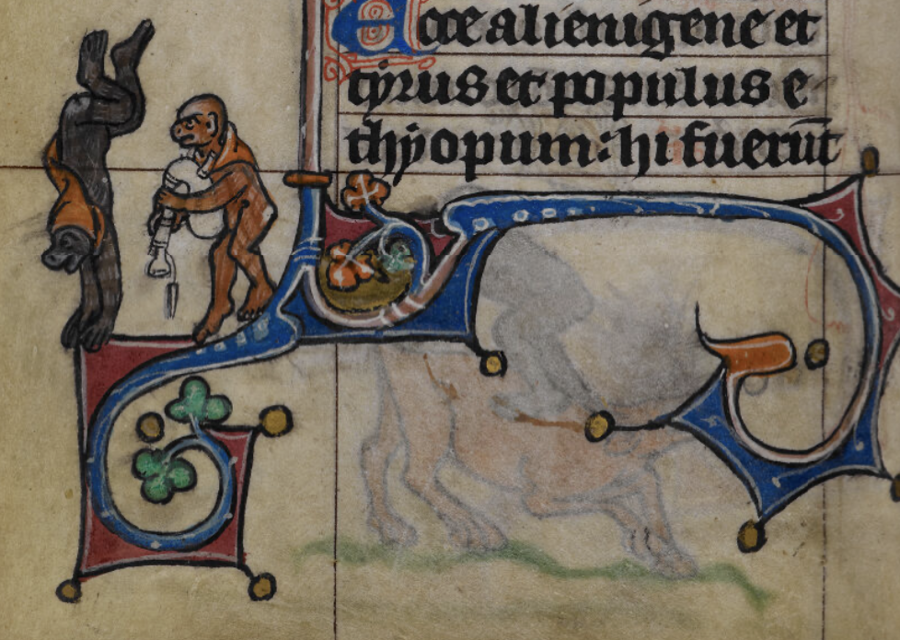 Ecce alienigene et
tyrus et populus e
thyopum: hi fuerūt